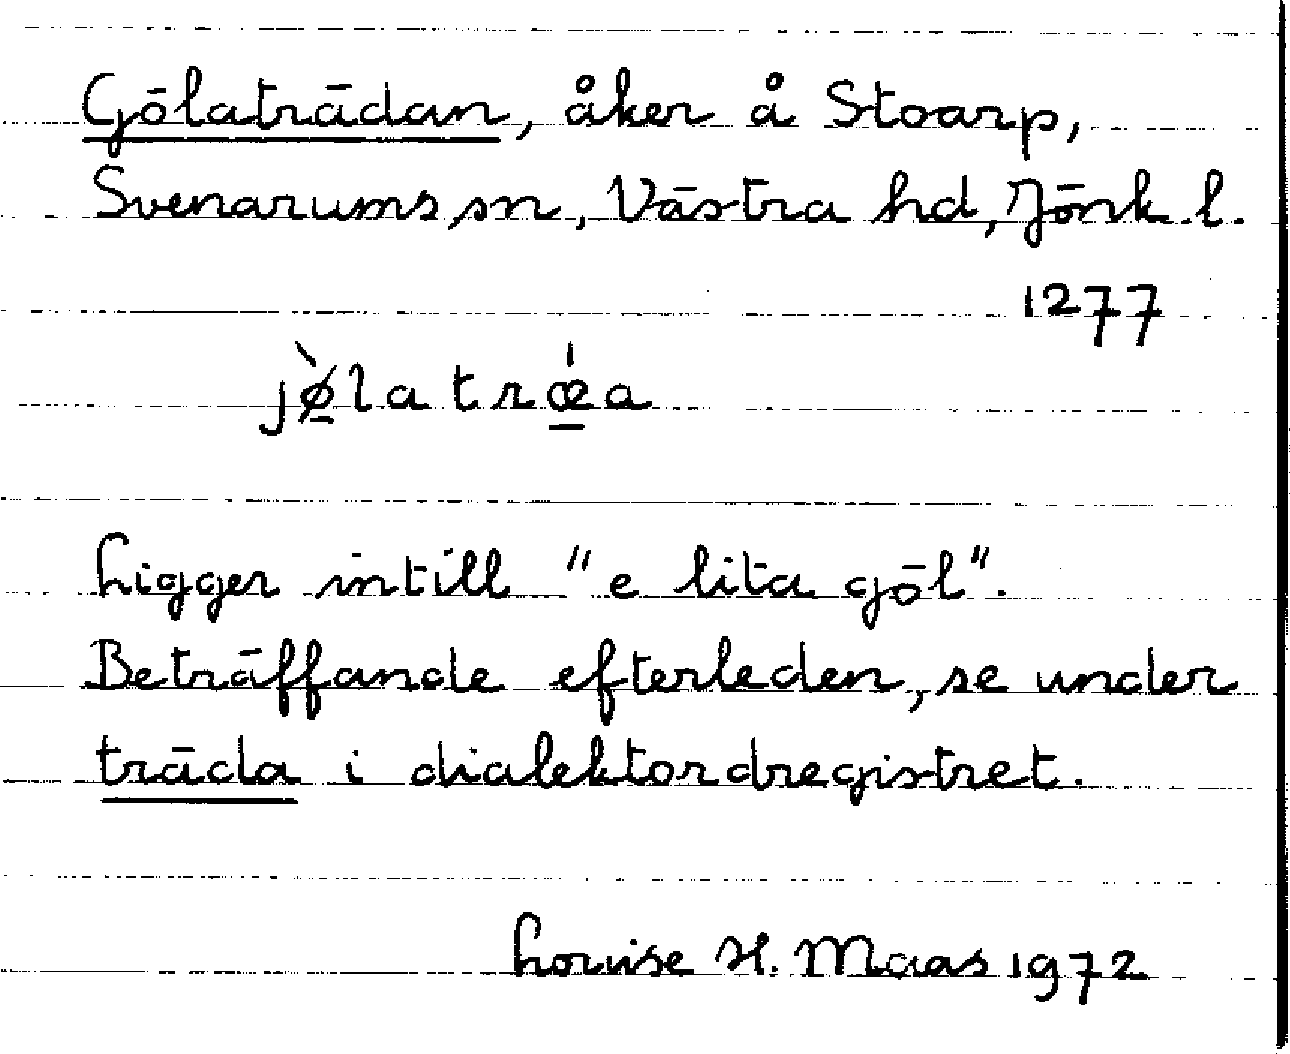 Gölaträdan, åker å Stoarp,
Svenarums sn, Västra hd, Jönk. l.
1277
jø̀la trœ́a
Ligger intill "e lita göl".
Beträffande efterleden, se under
träda i dialektordregistret.
Louise H. Maas 1972